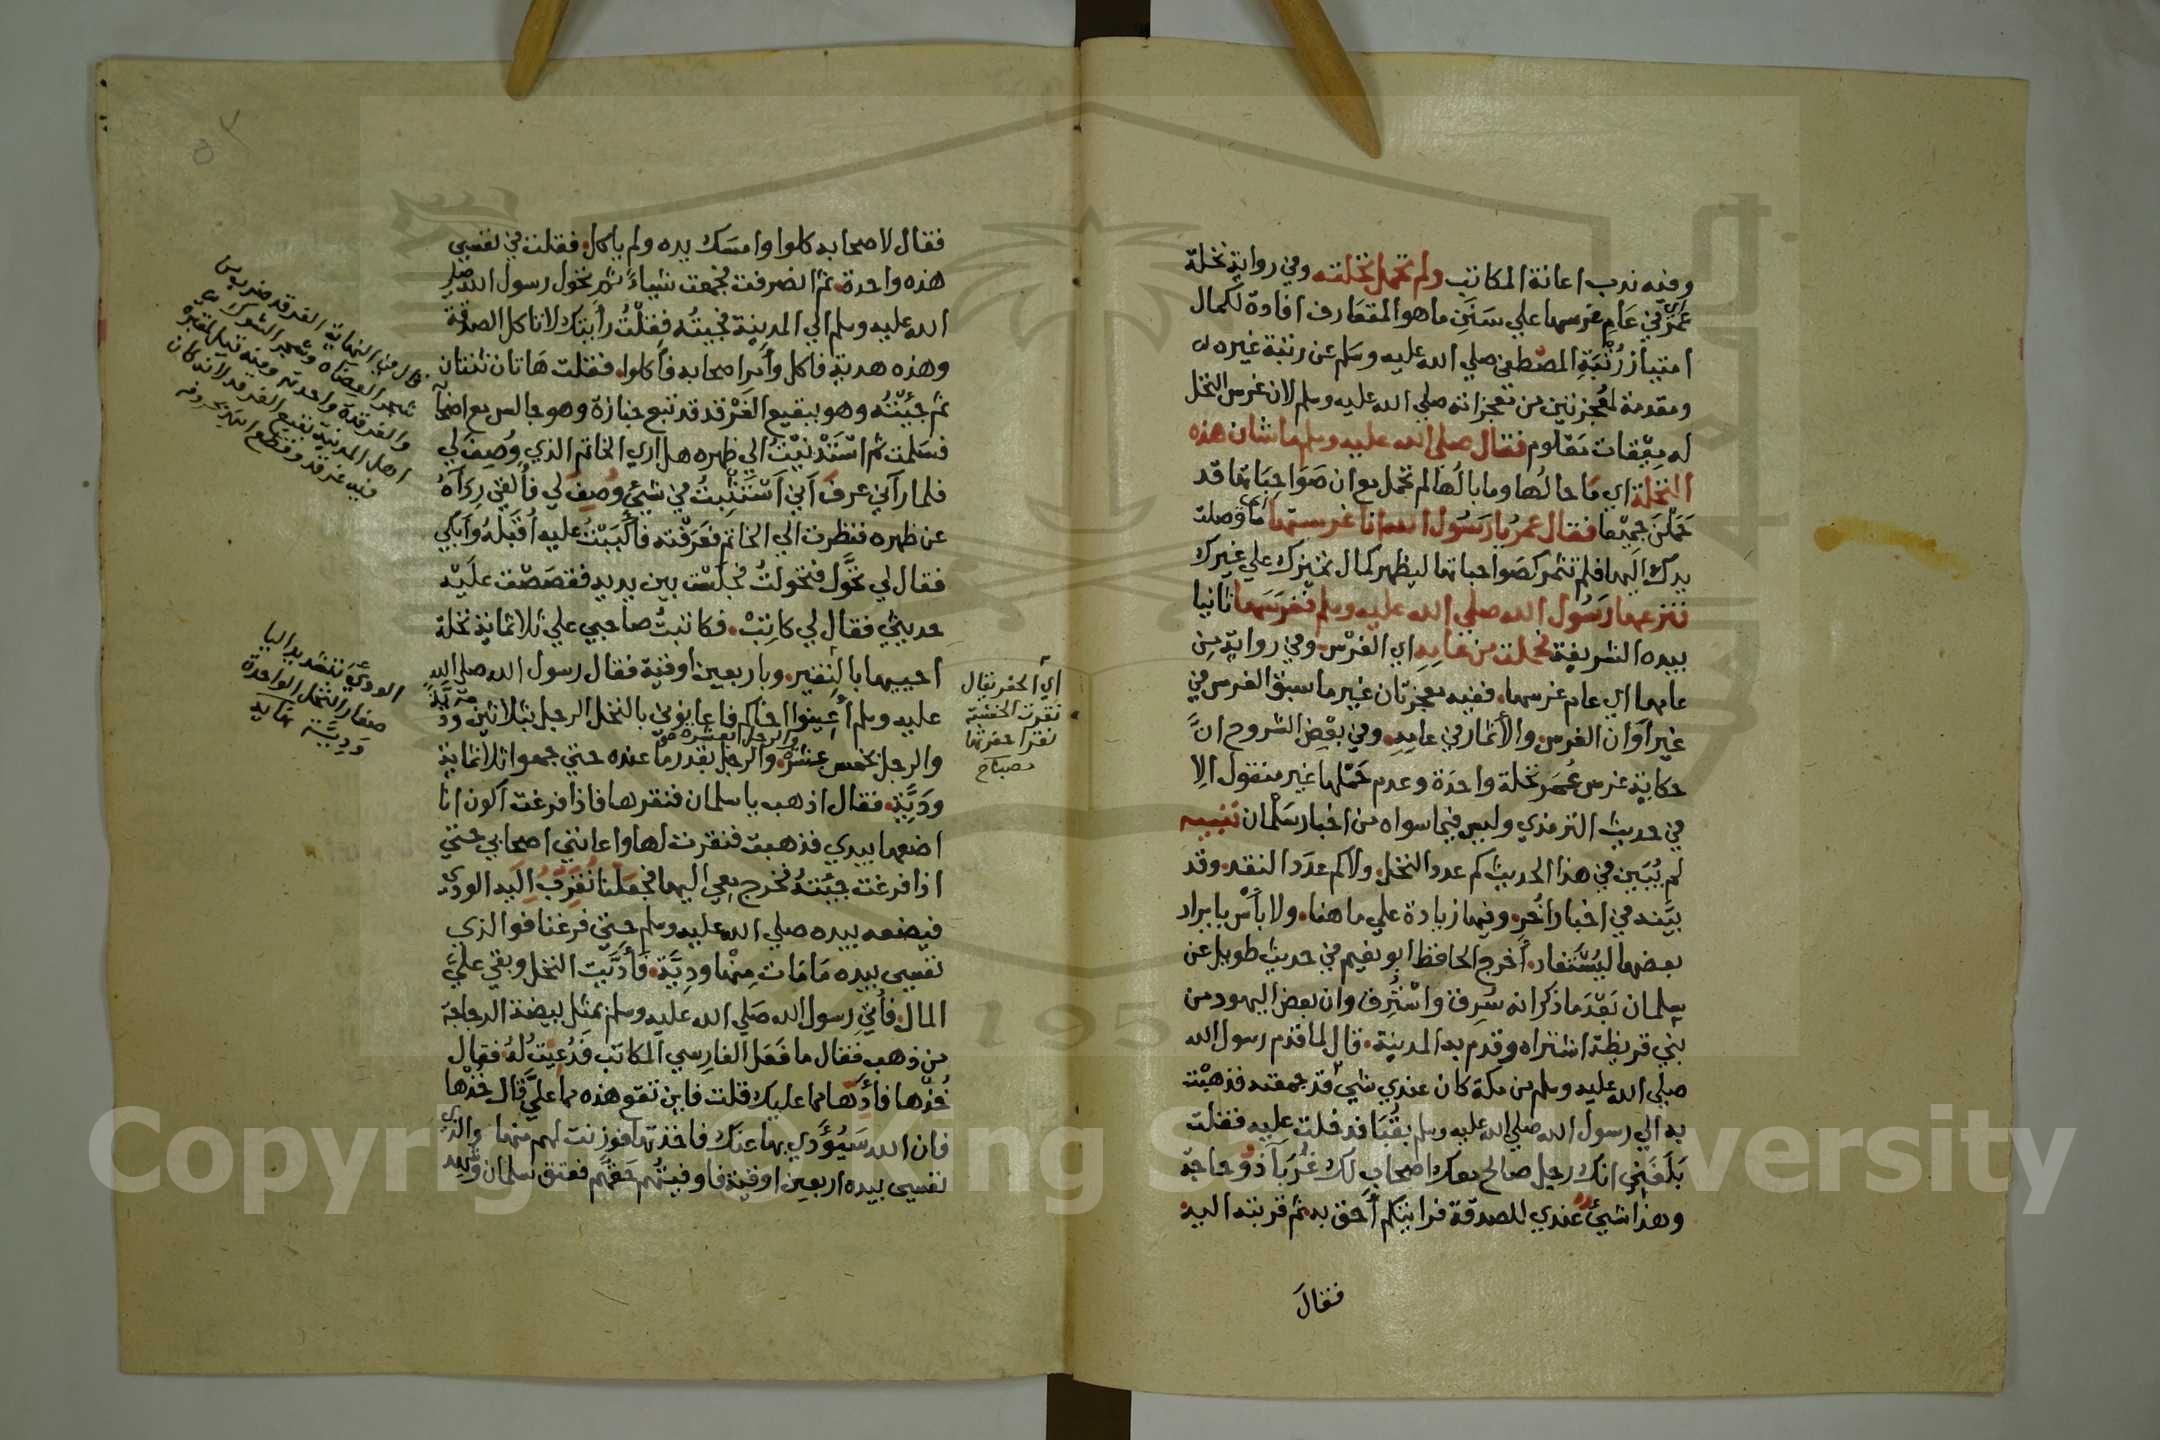 وفيه ندب اعانة المكاتب ولم تحمل نخلته وفي رواية نخلة
عمر اي في عام غرسها علي سنن ما هو المتعارف افادة لكمال
امتياز رتبة المصطفي صلي الله عليه وسلم عن رتبة غيره
ومقدمة لمعجزتين من معجزاته صلي الله عليه وسلم لان غرس النخل
له ميقات معلوم فقال صلي الله عليه وسلم ما شان هذه
النخلة اي ما حالها وما بالها لم تحمل مع ان صواحباتها قد
حملن جميعا فقال عمر يا رسول الله انا غرستها اي ما وصلت
يدك اليها فلم تثمر كصواحباتها ليظهر كمال تميزك علي غيرك
فنزعها رسول الله صلي الله عليه وسلم فغرسها ثانيا
بيده الشريفة فحملت من عامه اي الغرس وفي رواية من
عامها اي عام غرسها ففيه معجزتان غير ما سبق الغرس في
غير اوان الغرس والأثمار في عامه وفي بعض الشروح انَّ
حكاية غرس عُمَر نخلة واحدة وعدم حملها غير منقول الا
في حديث الترمذي وليس فيما سواه من اخبار سلمان تنبيه
لم يُبَين في هذا الحديث كم عدد النخل ولا كم عدد النقد وقد
بيَّنه في اخبار اُخر وفيها زيادة علي ما هنا ولا بأس بايراد
بعضها ليستفاد أخرج الحافظ ابو نعيم في حديث طويل عن
سلمان بعد ما ذكر انه سُرق واشتُري وان بعض اليهود من
بني قريظة اشتراه وقدم به المدينة قال لما قدم رسول الله
صلي الله عليه وسلم من مكة كان عندي شيئ قد جمعته فذهبت
به الي رسول الله صلي الله عليه وسلم بقُبَا فدخلت عليه فقلت
بلغني انك رجل صالح معك اصحاب لك غُرَبَا ذوُ حاجة
وهذا شيئ عندي للصدقة فرايتكم أحق به ثم قربته اليه
فقالَ
فقال لاصحابه كلوا وامسَك يده ولم ياكل فقلت في نفسي
هذه واحدة ثم انصرفت فجمعت شيياءً ثم تحول رسول الله صلي
الله عليه وسلم الي المدينة فجيتُه فقلتُ رأيتك لا تاكل الصدقة
وهذه هدية فاكل وأمر اصحابه فأكلوا فقلت هاتان ثنتان
ثم جئتُه وهو ببقيع الغَرْقد قد تبع جنازة وهو جالس مع اصحابه
فسلمت ثم اسْتَدْنيْتُ الي ظهره هل اري الخاتم الذي وُصِف لي
فلما رآني عرف أني أستثبتُ في شيئ وُصِفَ لي فألقي ردَآهُ
عن ظهره فنظرت الي الخاتم فعرفته فأكْبَبْتُ عليه اُقبّلهُ وأبكي
فقال لي تحوَّل فتحولتُ فجلست بين يديه فقصصْت عليه
حديثي فقال لي كاتِبْ فكاتبتُ صاحبي علي ثلاثماية نخلة
احييها بالنقير وباربعين اوقية فقال رسول الله صلي الله
عليه وسلم أعينوا اخاكم فاعانوني بالنخل الرجل بثلاثين وديَّةً
والرجل بخمس عشرة والرجل بقدر ما عنده حتي جمعوا ثلاثماية
والرجل بعشرة صح
وَدِيَّة فقال اذهب يا سلمان فنقرها فاذا فرغت أكون انا
اضعها بيدي فذهبت فنقرت لها واعانني اصحابي حتي
اذا فرغت جيتهُ فخرج معي اليها فجعلنا نُقرّب اليه الودي
فيضعه بيده صلي الله عليه وسلم حتي فرغنا فوالذي
نفسي بيده مَا مَات منها وديَّة فأدَّيت النخل وبقي عليَّ
المال فأُتي رسول الله صَلي الله عليه وسلم بمثل بيضة الدجاجة
من ذهب فقال ما فعَل الفارسي المكاتب فدُعيتُ لهُ فقال
خُذْها فأدِّها مما عليك قلت فاين تقع هذه مما عليَّ قال خُذْها
فان الله سَيُؤدّي بها عنك فاخذتها فوزنت لهم منها والذي
نفسي بيده اربعين اوقية فاوفيتُهم حَقهُم فعتق سلمان
قال في النهاية الغرقد ضرب من
شجر العضاه وشجر الشوك
والغرقدة واحدته ومنه قيل لمقبرة
اهل المدينة بقيع الغرقد لانه كان
فيه غرقد وقطع
الوديّ بتشديد اليا
صغار النخل الواحدة
وَدِيَّة نهاية
أي الحفر يقال
نقرت الخشبة
نقرا حفرتها
مصباح
Copyright © King Saud University
195